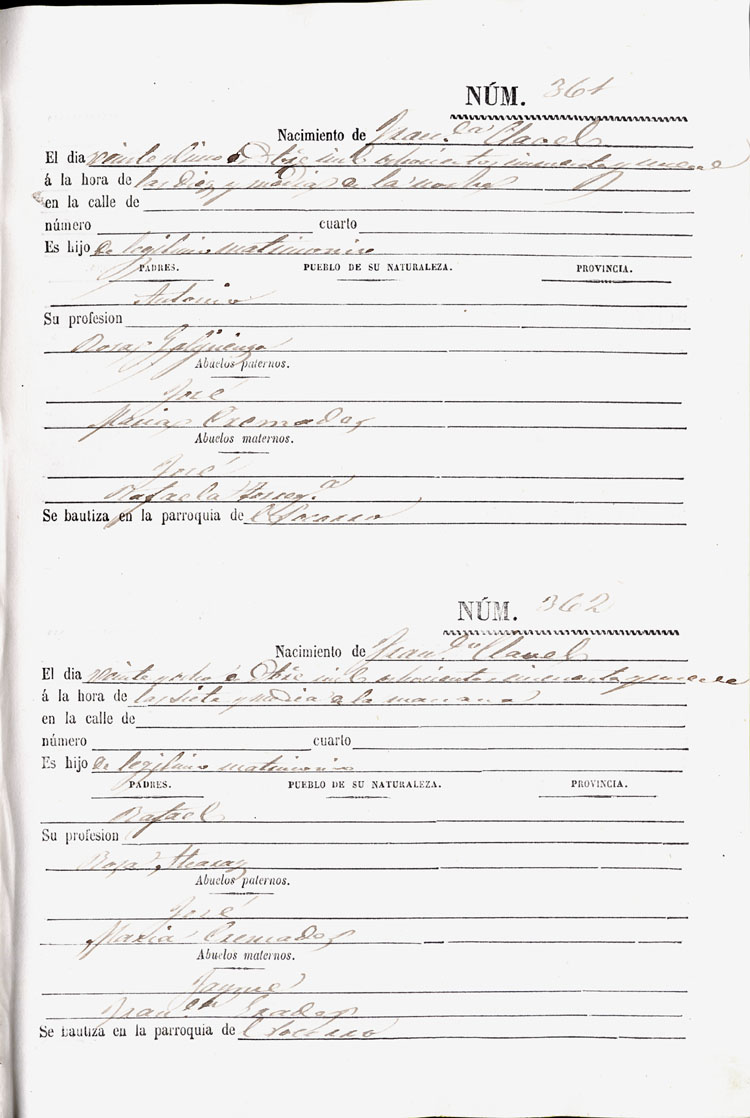 NÚM. 361
Nacimiento de Fran.ca Clavel
El dia veinte y cinco de Dbre mil ochocientos cincuenta y nueve
á la hora de las diez y media de la noche
en la calle de
número cuarto
Es hijo de legitimo matrimonio
PADRES. PUEBLO DE SU NATURALEZA. PROVINCIA.
Antonio
Su profesion
Rosa
Abuelos paternos.
José
Maria Cremades
Abuelos maternos.
José
Rafaela
Se bautiza en la parroquia de el Socorro
NÚM. 362
Nacimiento de Fran.co Clavel
El dia veinte y ocho de Dbre mil ochocientos cincuenta y nueve
á la hora de las siete y media de la mañana
en la calle de
número cuarto
Es hijo de legitimo matrimonio
PADRES. PUEBLO DE SU NATURALEZA. PROVINCIA.
Rafael
Su profesion
Rosa
Abuelos paternos.
José
Maria Cremades
Abuelos maternos.
Jayme
Fran.ca
Se bautiza en la parroquia de el Socorro